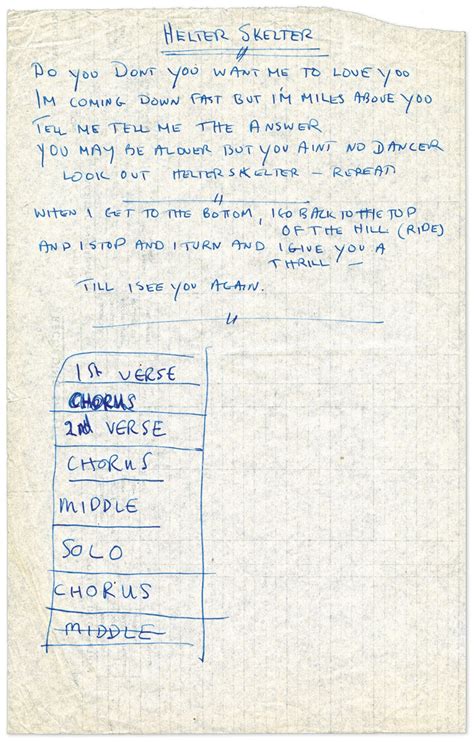 HELTER SKELTER
DO YOU DONT YOU WANT ME TO LOVE YOO
I'M COMING DOWN FAST BUT I'M MILES ABOVE YOO
TELL ME TELL ME THE ANSWER
YOU MAY BE A LOVER BUT YOU AINT NO DANCER
LOOK OUT HELTER SKELTER — REPEAT
WHEN I GET TO THE BOTTOM, I GO BACK TO THE TOP
OF THE HILL (RIDE)
AND I STOP AND I TURN AND I GIVE YOU A
THRILL —
TILL I SEE YOU AGAIN.
1st VERSE
CHORUS
2nd VERSE
CHORUS
MIDDLE
SOLO
CHORUS
MIDDLE